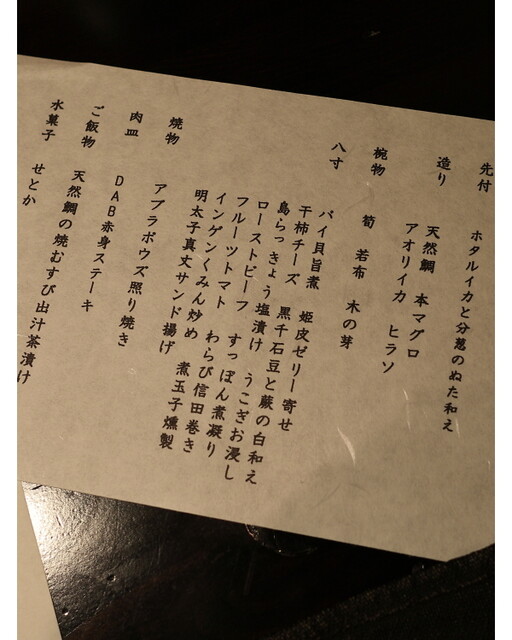 先付
ホタルイカと分葱のぬた和え
造り
天然鯛 本マグロ
アオリイカ ヒラソ
椀物
筍 若布 木の芽
八寸
バイ貝旨煮 姫皮ゼリー寄せ
干柿チーズ 黒千石豆と蕨の白和え
島らっきょう塩漬け うこぎお浸し
ローストビーフ すっぽん煮凝り
フルーツトマト わらび信田巻き
インゲンくみん炒め 煮玉子燻製
明太子真丈サンド揚げ
焼物
アブラボウズ照り焼き
肉皿
DAB赤身ステーキ
ご飯物
天然鯛の焼むすび出汁茶漬け
水菓子
せとか